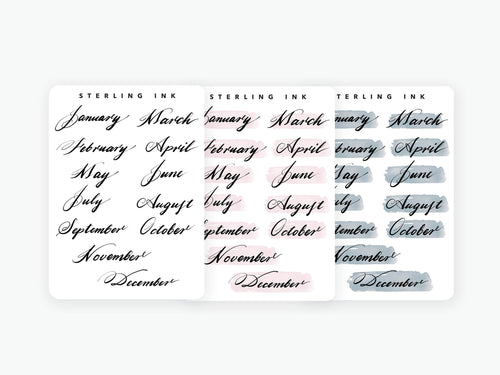 STERLING INK
January March
February April
May June
July August
September October
November
December
STERLING INK
anuary March
ebruary April
May June
uly August
eptember October
November
December
TERLING INK
nuary March
bruary April
ay June
ly August
tember October
November
December